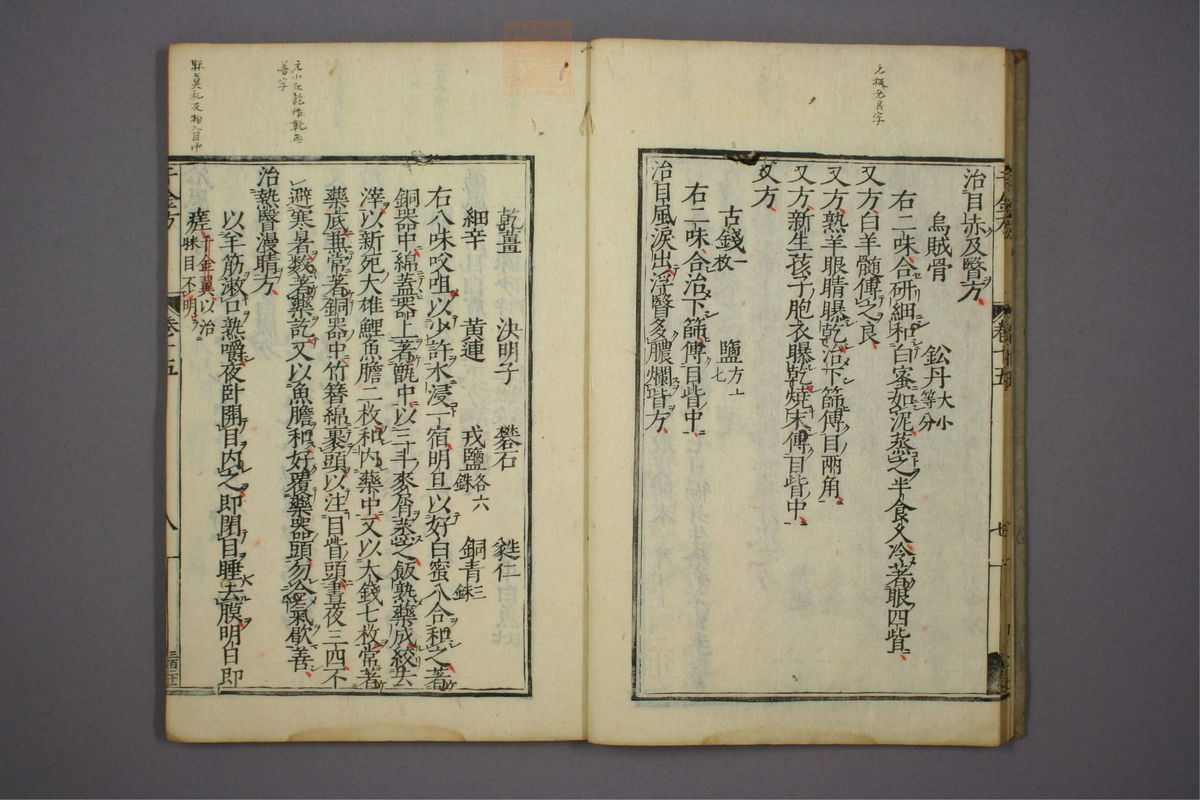 治目赤及瞖方
烏賊骨 鈆丹大小等分
右二味合研細和白蜜如泥蒸之半食久冷著眼四眥
又方白羊髓傅之良
又方熟羊眼睛曝乾治下篩傅目兩角
又方新生孩子胞衣曝乾燒末傅目眥中
又方
古錢一枚 鹽方寸匕
右二味合治下篩傅目眥中
治目風淚出浮瞖多膿爛眥方
乾薑 決明子 礬石 蕤仁
細辛 黃連 戎鹽各六銖 銅青三銖
右八味㕮咀以少許水浸一宿明旦以好白蜜八合和之著
銅器中綿蓋器上著甑中以三斗麥屑蒸之飯熟藥成絞去
滓以新死大雄鯉魚膽二枚和內藥中又以大錢七枚常著
藥底兼常著銅器中竹簪綿裹頭以注目眥頭晝夜三四不
避寒暑數著藥訖又以魚膽和好覆藥器頭勿令氣歇善
治熱瞖漫睛方
以羊筋漱口熟嚼夜臥開目內之即閉目睡去膜明日即
瘥千金翼以治眯目不明
卷十五
八